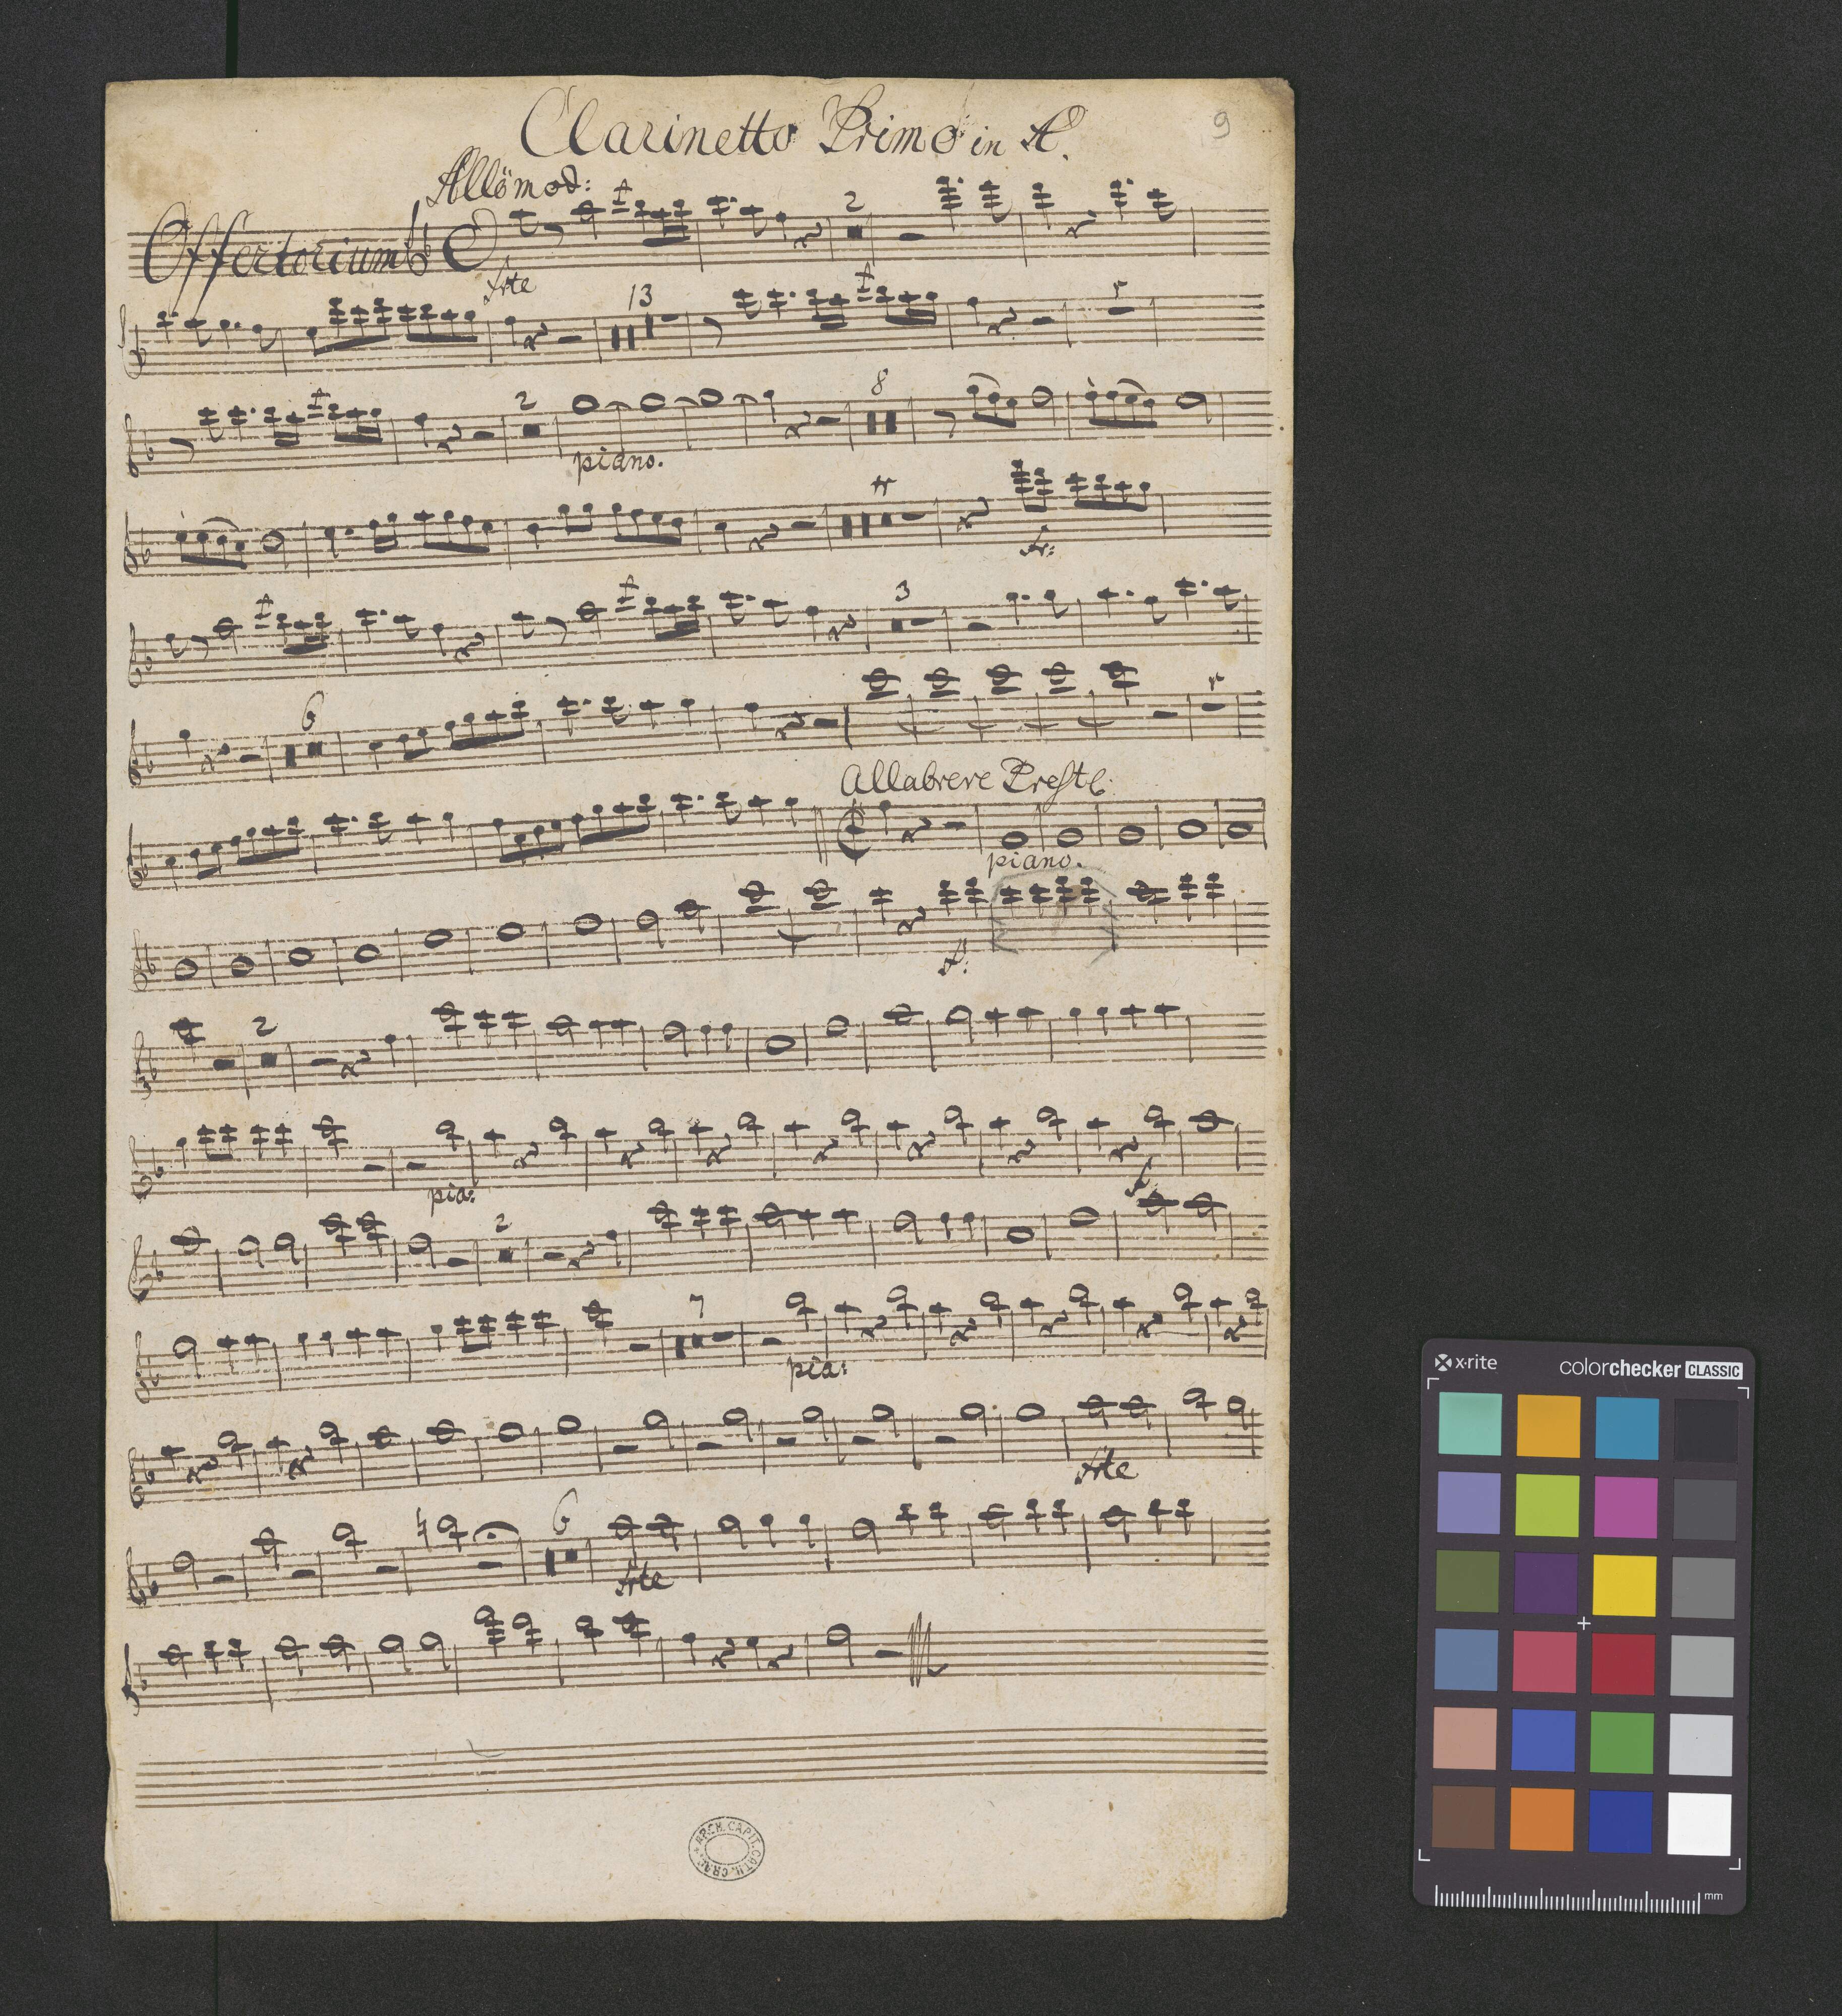 Clarinetto Primo in A.
9
Allo mod:
Offertorium
2
frte
13
2
8
piano.
fr:
3
6
Allabreve Presto.
piano.
f:
2
pia:
f
2
7
pia:
frte
6
frte
ARCH. CAPIT. CATH. CRAC.
x-rite
colorchecker CLASSIC
mm